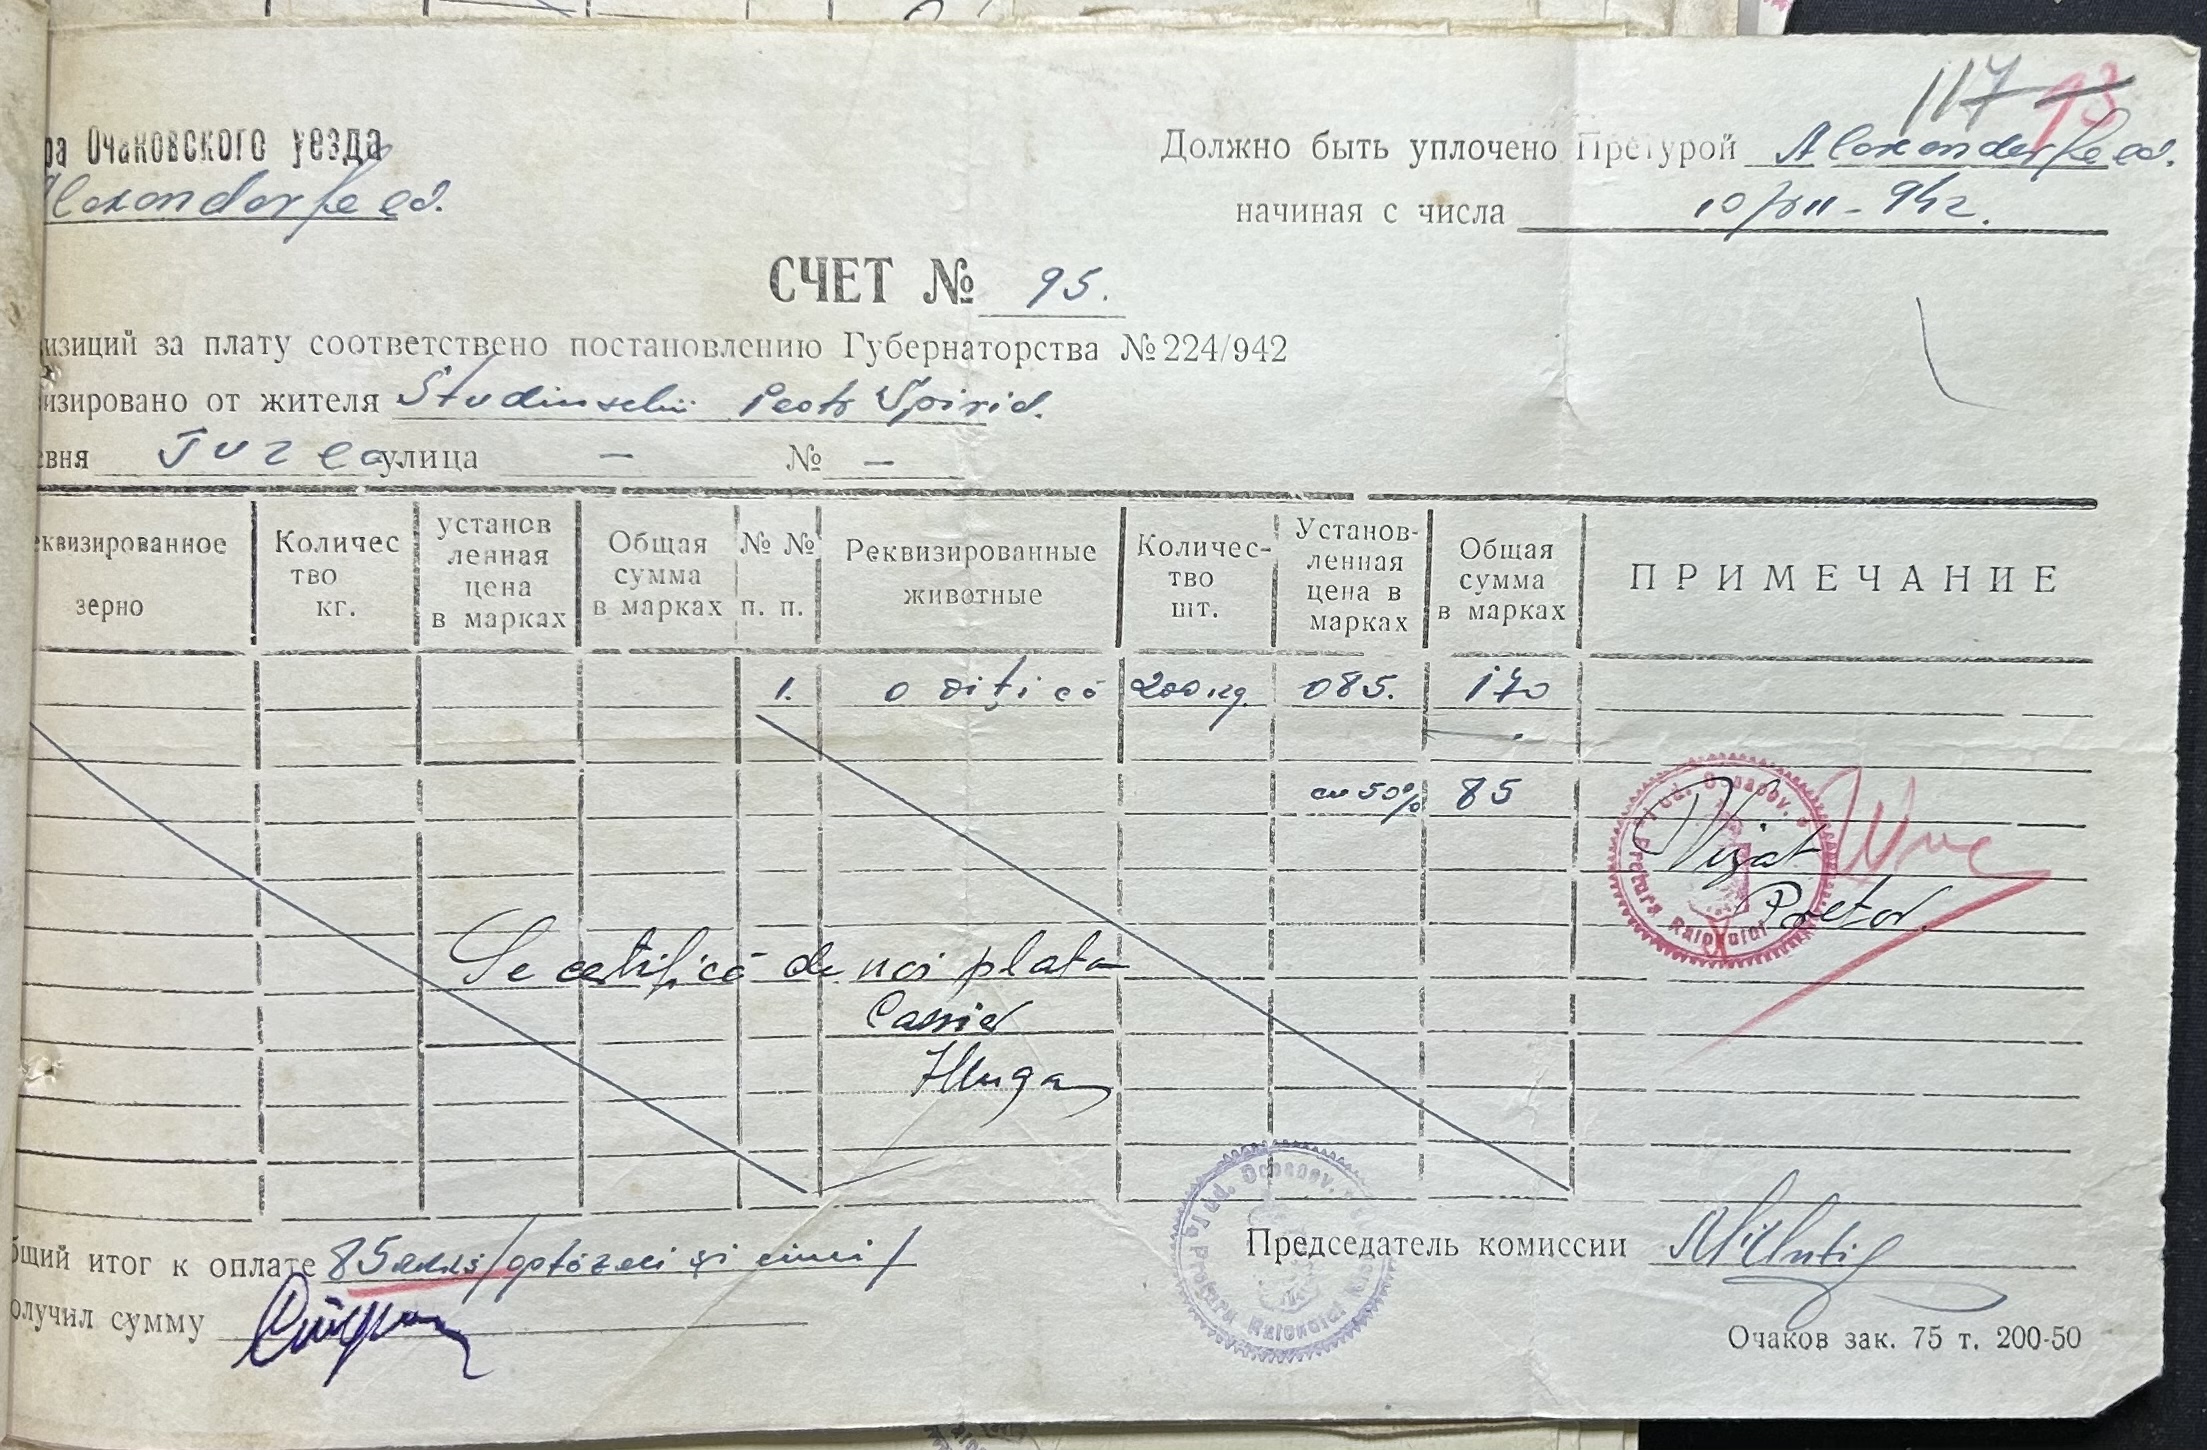 117 93
ра Очаковского уезда
Должно быть уплочено Претурой Alexanderfeld.
lexanderfeld.
начиная с числа 10/XII-942.
СЧЕТ № 95.
изиций за плату соответствено постановлению Губернаторства №224/942
изировано от жителя Studinschi Peotr Spirid.
евня улица — № —
еквизированное зерно
Количес тво кг.
установ ленная цена в марках
Общая сумма в марках
№ № п. п.
Реквизированные животные
Количес- тво шт.
Установ- ленная цена в марках
Общая сумма в марках
ПРИМЕЧАНИЕ
1. o viţică 200 kg. 085. 170
cu 50% 85
Jud. Oceacov. Pretura Raionului
Vizat
Pretor
Se certifică de noi plata
Casier
Jud. Oceacov. Pretura Raionului
бщий итог к оплате 85 mărci /optzeci şi cinci/
Председатель комиссии
олучил сумму
Очаков зак. 75 т. 200-50